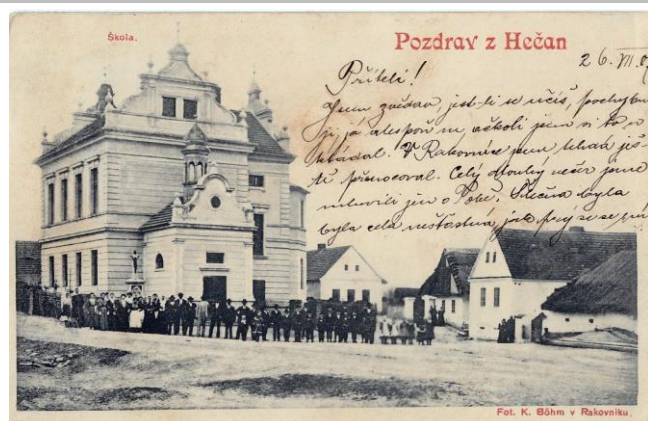 Škola.
Pozdrav z Hečan
26. VII. 
Příteli!
Jsem zvědav, jest-li se učíš, pochybu
ji, já alespoň ne, ačkoli jsem si to
V Rakovníce jsem
tě přenocoval. Celý dlouhý večer jsme
mluvili jen o Tobě. Slečna byla
byla celá nešťastná, jak prý se se
Fot. K. Böhm v Rakovníku.